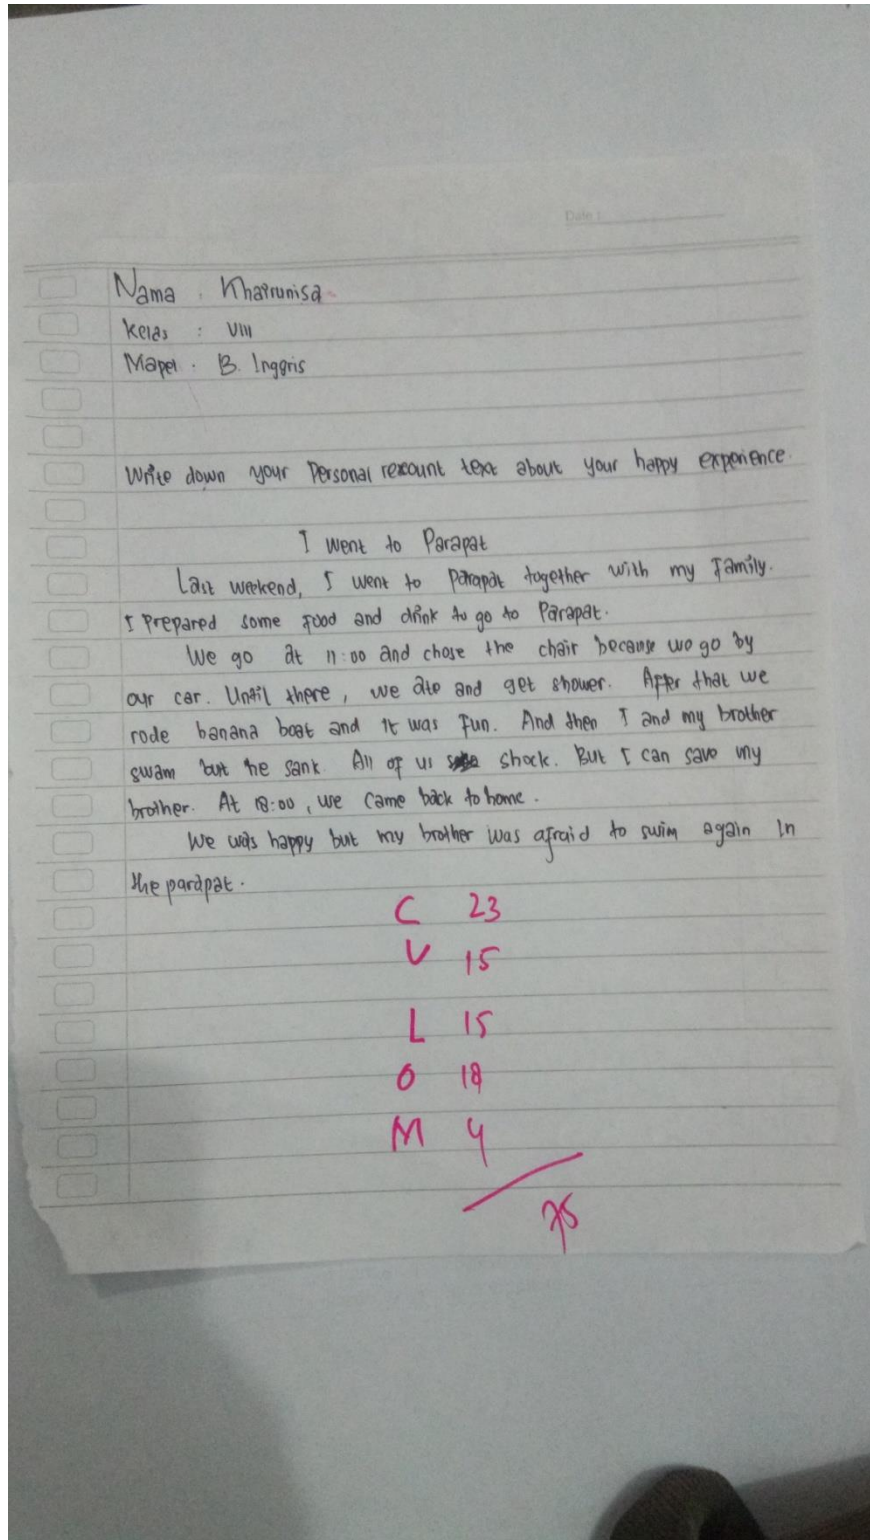 Date :
Nama : Khairunisa
Kelas : VIII
Mapel : B. Inggris
Write down your Personal recount text about your happy experience.
I went to Parapat
Last weekend, I went to Parapat together with my Family.
I Prepared some Food and drink to go to Parapat.
We go at 11:00 and chose the chair because we go by
our car. Until there, we ate and get shower. After that we
rode banana boat and it was Fun. And then I and my brother
swam but he sank. All of us shock. But I can save my
brother. At 18:00, we came back to home.
We was happy but my brother was afraid to swim again in
the parapat.
C 23
V 15
L 15
O 18
M 4
75